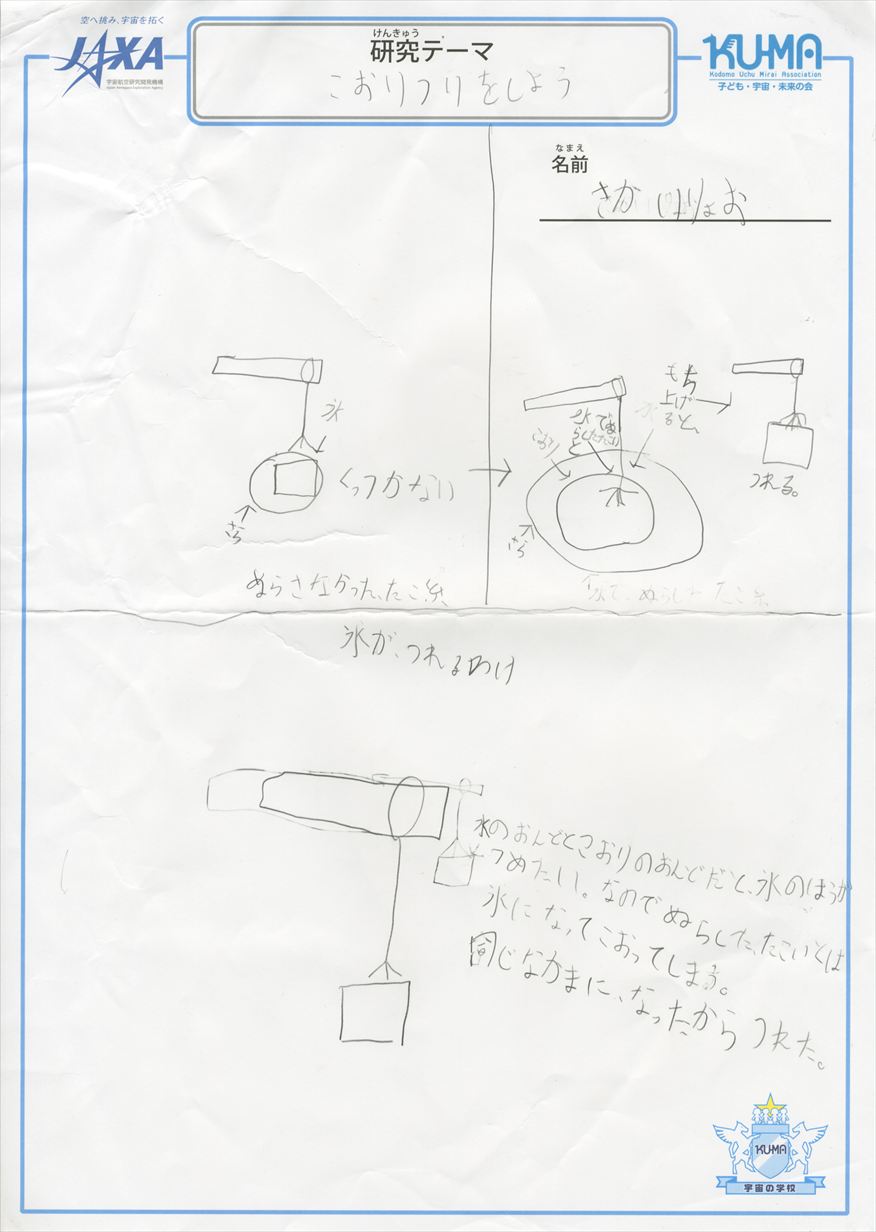 空へ挑み、宇宙を拓く
JAXA
宇宙航空研究開発機構
Japan Aerospace Exploration Agency
けんきゅう
研究テーマ
こおりつりをしよう
KU-MA
Kodomo Uchu Mirai Association
子ども・宇宙・未来の会
なまえ
名前
さか
氷
くっつかない
さら
ぬらさなかった、たこ糸、
こおり
水でぬ
らしたたこい
と
氷
もち
上げ
ると、
つれる。
さら
水で、ぬらした たこ糸
氷が、つれるわけ
水のおんどとこおりのおんどだと、氷のほうが
つめたい。なのでぬらした、たこいとは
氷になってこおってしまう。
同じなかまに、なったから つれた。
KU-MA
宇宙の学校